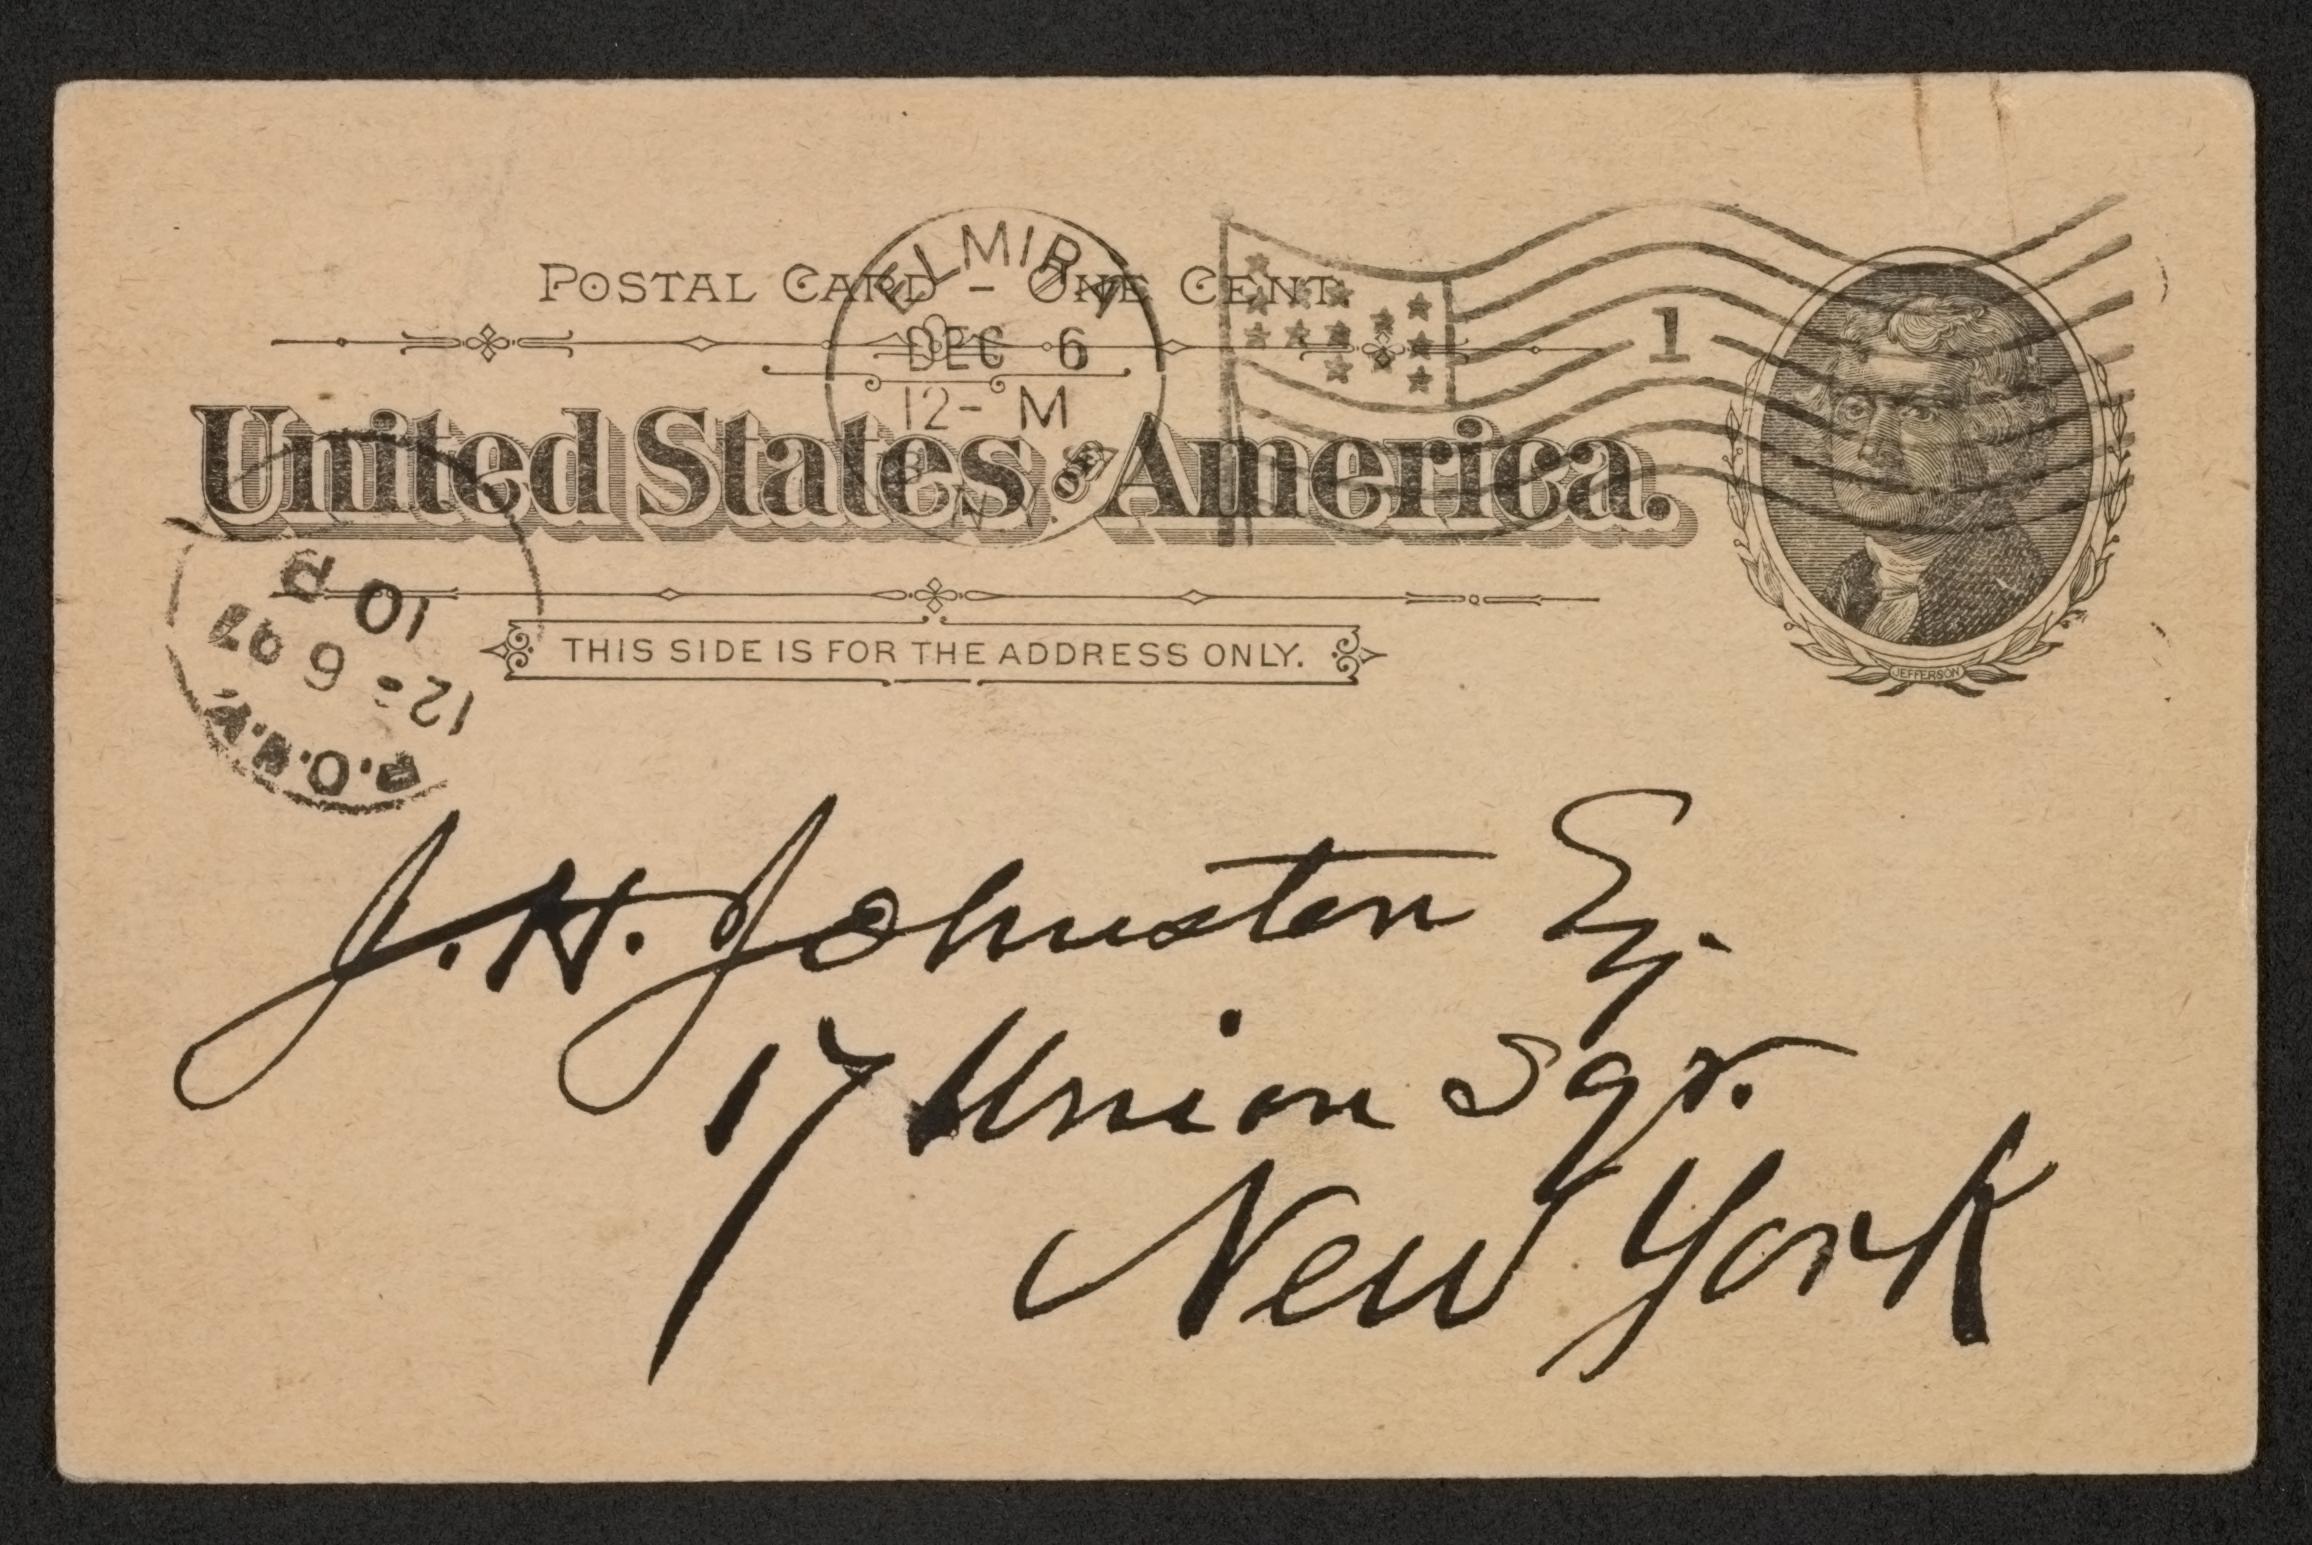 POSTAL CARD - ONE CENT
ELMIRA
DEC 6
12- M
N.Y.
1
United States OF America.
JEFFERSON
THIS SIDE IS FOR THE ADDRESS ONLY.
P.O.N.Y.
12-6 97
10 P
J. H. Johnston Esq.
17 Union Sqr.
New York